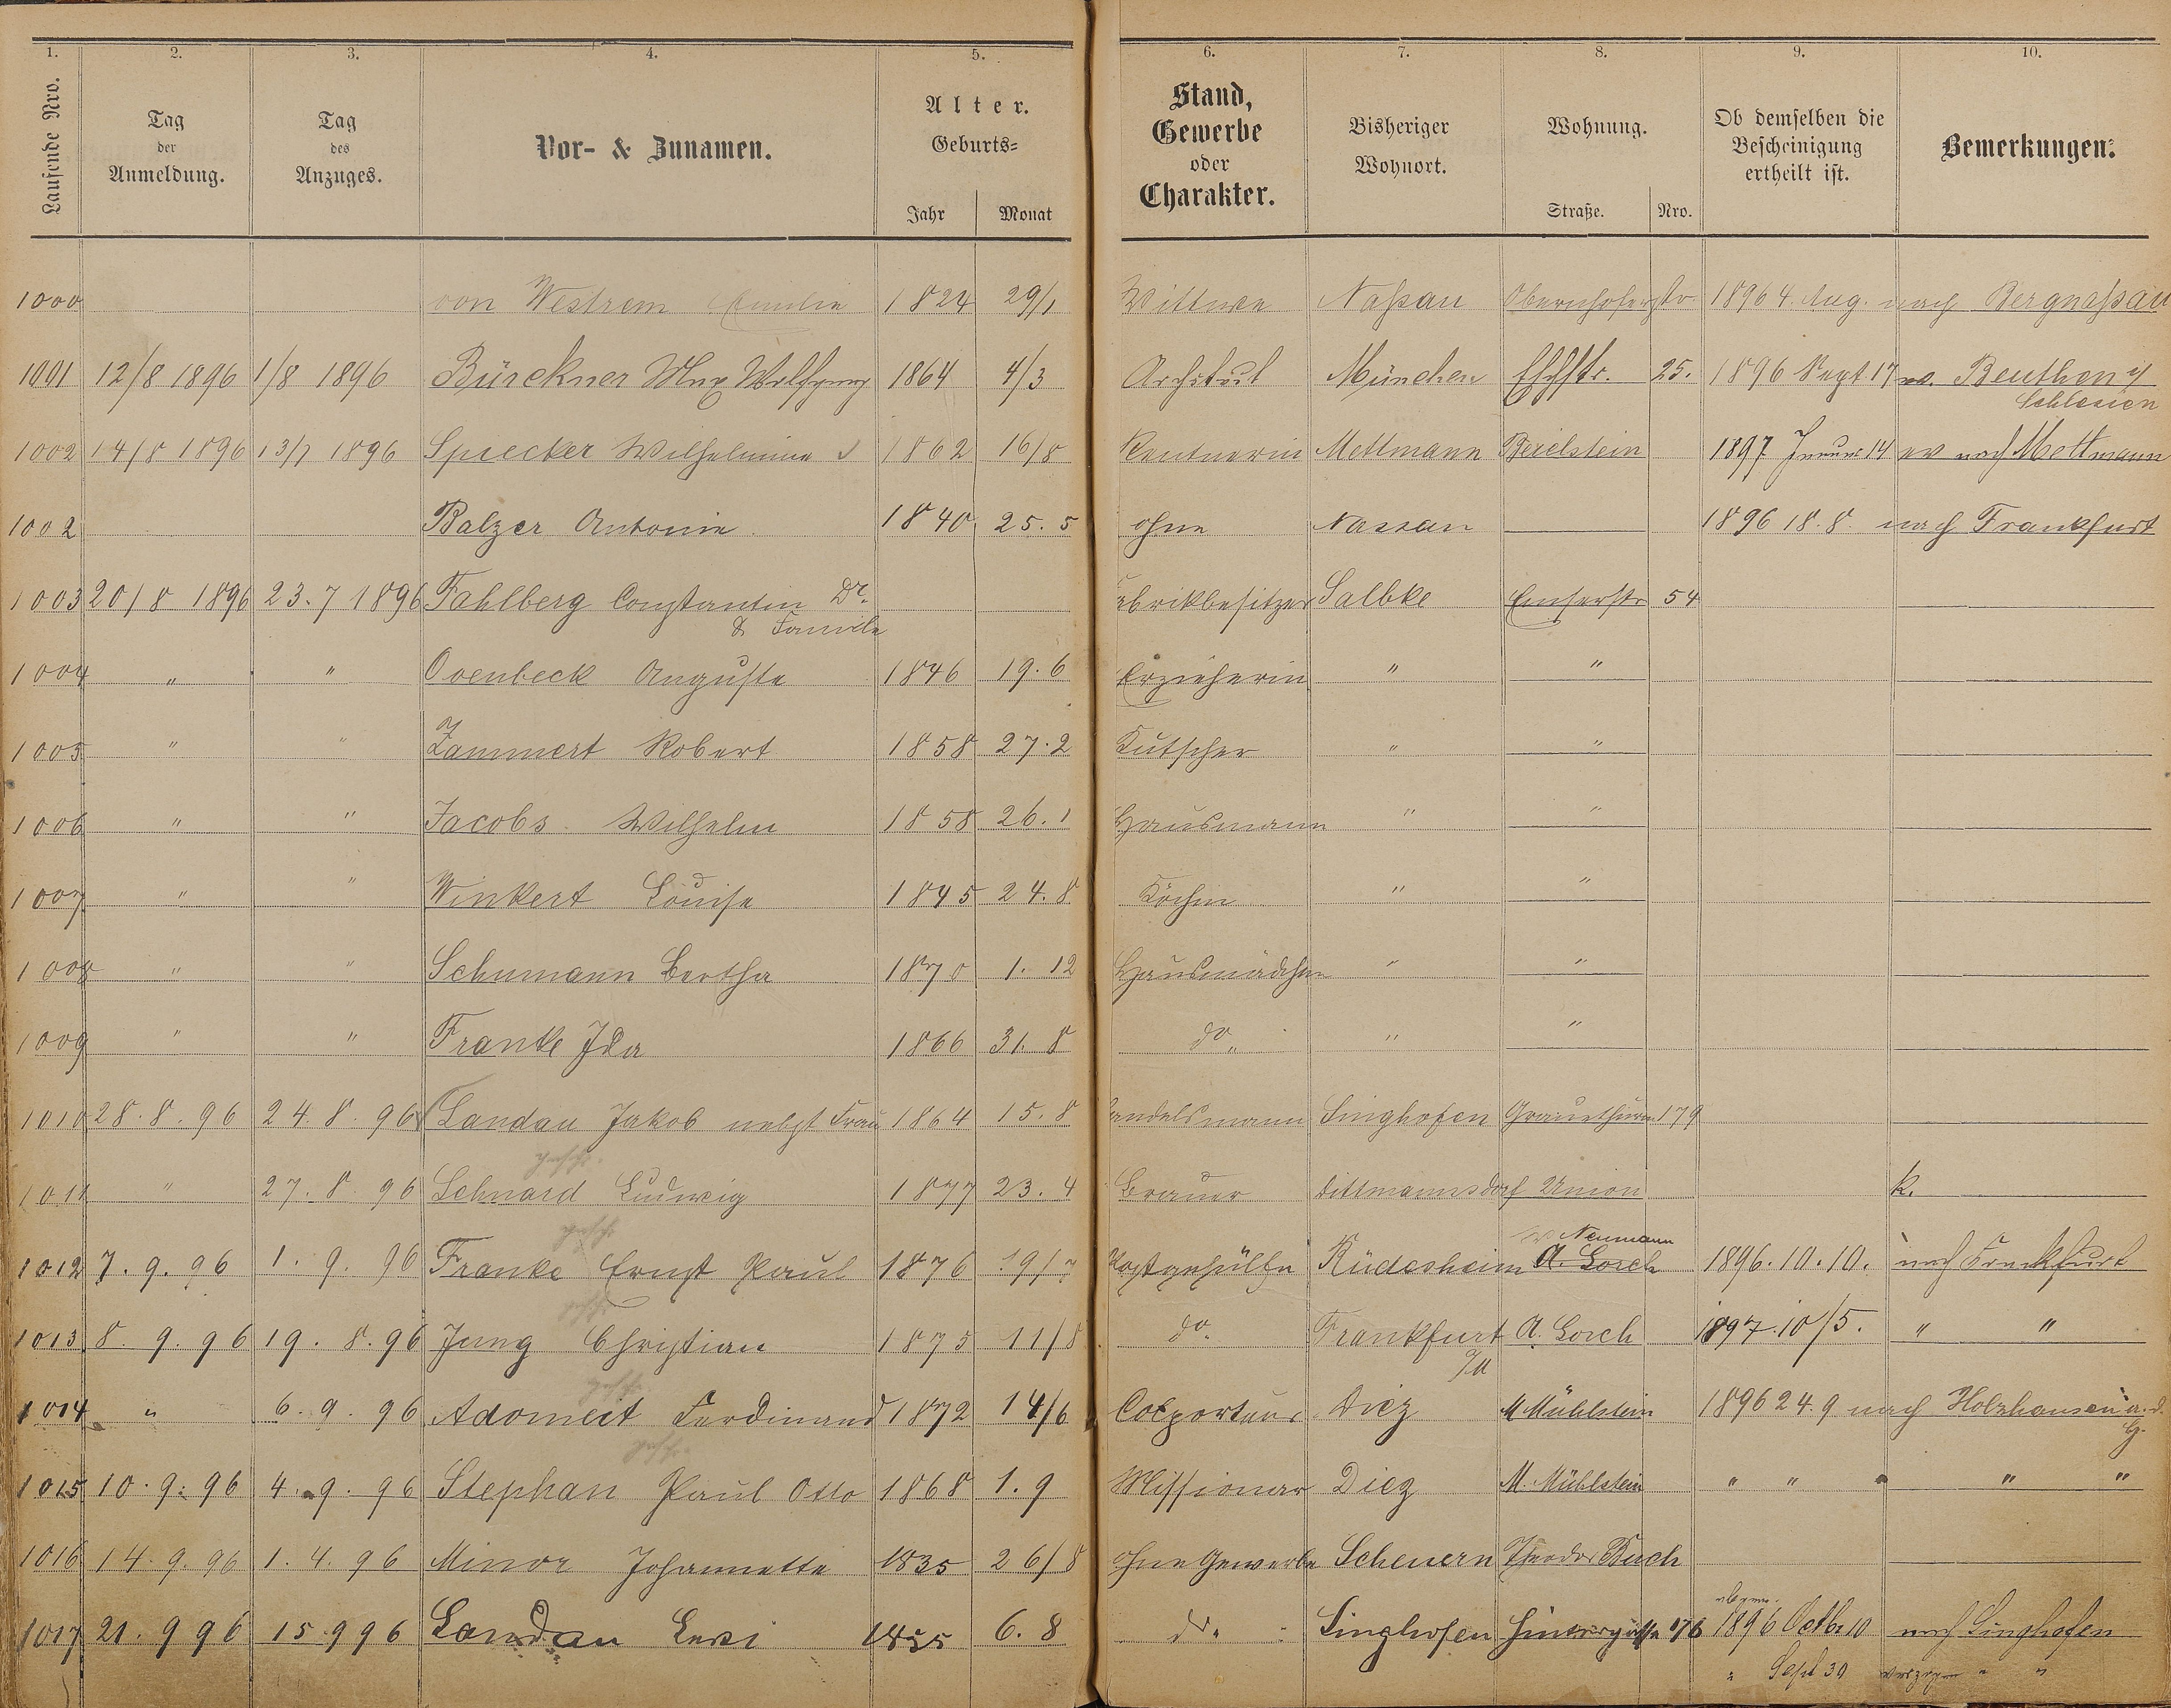 1. 2. 3. 4. 5. 6. 7. 8. 9. 10.
Laufende Nro.
Tag der Anmeldung.
Tag des Anzuges.
Vor- & Zunamen.
Alter. Geburts=
Jahr Monat
Stand, Gewerbe oder Charakter.
Bisheriger Wohnort.
Wohnung.
Straße. Nro.
Ob demselben die Bescheinigung ertheilt ist.
Bemerkungen.
1000 von Westrem Emilie 1824 29/1 Wittwe Naßau Obernhoferstr 1896 4. Aug. nach Bergnaßau
1001 12/8 1896 1/8 1896 Bürckner Max Wolfgang 1864 4/3 Architect München 25. 1896 Sept. 17 Beuthen
Schlesien
1002 14/8 1896 13/7 1896 Spiecker Wilhelmine 1862 16/8 Rentnerin Mettmann 1897 Januar 14 nach Mettmann
1002 Balzer Antonie 1840 25. 5 ohne Nassau 1896 18. 8. nach Frankfurt
1003 20/8 1896 23. 7 1896 Fahlberg Constantin Dr. Fabrikbesitzer Salbke Emserstr 54
& Familie
1004 " " Ovenbeck Auguste 1846 19. 6 Erzieherin " "
1005 " " Zammert Robert 1858 27. 2 Kutscher " "
1006 " " Jacobs Wilhelm 1858 26. 1 Hausmann " "
1007 " " Winkert Louise 1845 24. 8 Köchin " "
1008 " " Schumann Bertha 1870 1. 12 Hausmädchen " "
1009 " " Franke Ida 1866 31. 8 do " "
1010 28. 8. 96 24. 8. 96 Landau Jakob nebst Frau 1864 15. 8 Handelsmann Singhofen Grauethurm 179
1011 " 27. 8. 96 Lehnard Ludwig 1877 23. 4 Brauer Dittmannsdorf Union k.
Neumann
1012 7. 9. 96 1. 9. 96 Franke Ernst Paul 1876 19/7 Postgehülfe Rüdesheim A. Lorch 1896. 10. 10. nach Frankfurt
1013 8. 9. 96 19. 8. 96 Jung Christian 1875 11/8 do. Frankfurt A. Lorch 1897. 10/5. " "
1014 " 6. 9. 96 Adomeit Ferdinand 1872 14/6 Colporteur Diez M Mühlstein 1896 24. 9 nach Holzhausen a. d. H.
1015 10. 9. 96 4. 9. 96 Stephan Paul Otto 1868 1. 9 Missionar Diez M. Mühlstein " " " "
1016 14. 9. 96 1. 4. 96 Minor Johannette 1835 26/8 ohne Gewerbe Scheuern Theodor Buch
1017 21. 9 96 15. 9 96 Landau Levi 1835 6. 8 do. Singhofen Hintergasse 176 1896 Octbr 10 nach Singhofen
" Sept 30 verzogen " "